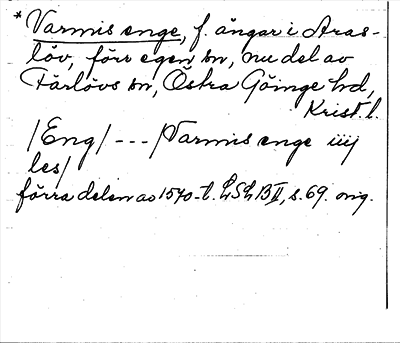 * Varmis enge, f. ängar i Aras-
löv, förr egen sn, nu del av
Färlövs sn, Östra Göinge hd,
Krist. l.
/Eng/ --- /Varmis enge iiij
les/
förra delen av 1570-t. LSLB II, s. 69. orig.